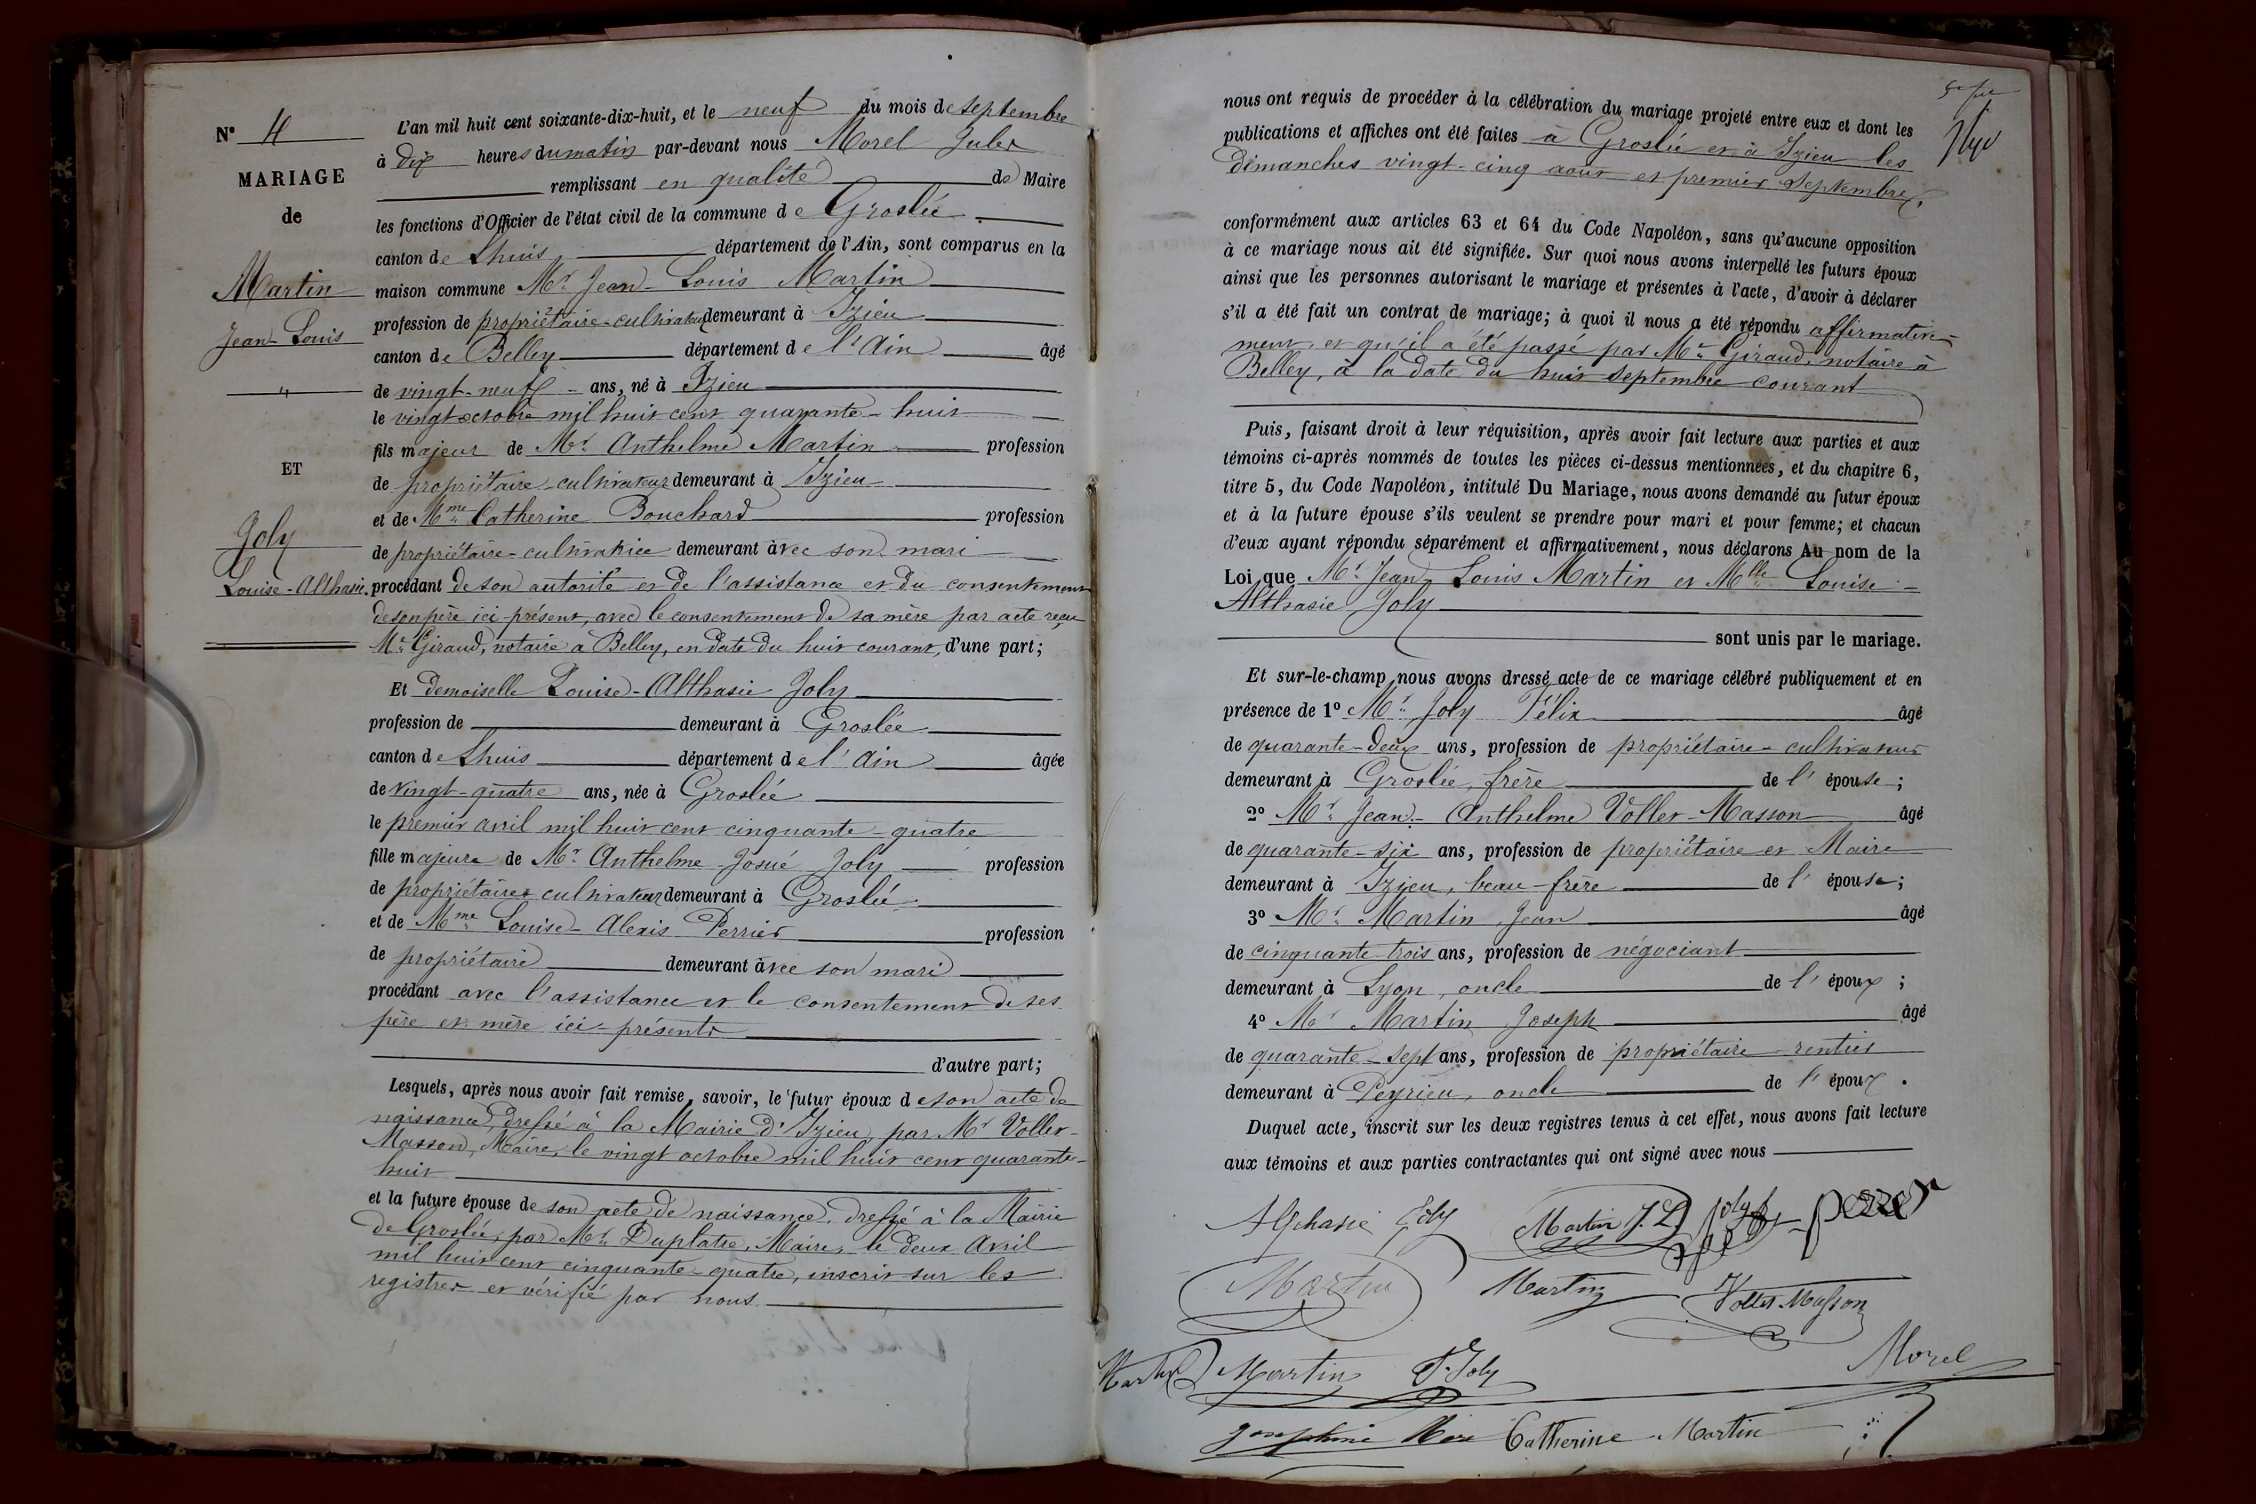 N° 4
MARIAGE
de
Martin
Jean-Louis
"
ET
Joly
Louise-Althasie.
L'an mil huit cent soixante-dix-huit, et le neuf du mois de septembre
à dix heures du matin par-devant nous Morel Jules
remplissant en qualité de Maire
les fonctions d'Officier de l'état civil de la commune de Groslée
canton de Lhuis département de l'Ain, sont comparus en la
maison commune Mr Jean-Louis Martin
profession de propriétaire-cultivateur demeurant à Izieu
canton de Belley département de l'Ain âgé
de vingt-neuf ans, né à Izieu
le vingt octobre mil huit cent quarante-huit
fils majeur de Mr Anthelme Martin profession
de propriétaire-cultivateur demeurant à Izieu
et de Mme Catherine Bouchard profession
de propriétaire-cultivatrice demeurant avec son mari
procédant de son autorité et de l'assistance et du consentement
de son père ici présent, avec le consentement de sa mère par acte reçu
Me Giraud, notaire à Belley, en date du huit courant, d'une part;
Et demoiselle Louise-Althasie Joly
profession de demeurant à Groslée
canton de Lhuis département de l'Ain âgée
de vingt-quatre ans, née à Groslée
le premier avril mil huit cent cinquante-quatre
fille majeure de Mr Anthelme-Josué Joly profession
de propriétaire cultivateur demeurant à Groslée
et de Mme Louise-Alexis Perrier profession
de propriétaire demeurant avec son mari
procédant avec l'assistance et le consentement de ses
père et mère ici-présents
d'autre part;
Lesquels, après nous avoir fait remise, savoir, le futur époux de son acte de
naissance, dressé à la Mairie d'Izieu par Mr Vollet-
Masson, Maire, le vingt octobre mil huit cent quarante-
huit
et la future épouse de son acte de naissance, dressé à la Mairie
de Groslée, par Mr Duplatre, Maire, le deux Avril
mil huit cent cinquante-quatre, inscrit sur les
registres et vérifié par nous
nous ont requis de procéder à la célébration du mariage projeté entre eux et dont les
publications et affiches ont été faites à Groslée et à Izieu les
dimanches vingt-cinq août et premier septembre,
conformément aux articles 63 et 64 du Code Napoléon, sans qu'aucune opposition
à ce mariage nous ait été signifiée. Sur quoi nous avons interpellé les futurs époux
ainsi que les personnes autorisant le mariage et présentes à l'acte, d'avoir à déclarer
s'il a été fait un contrat de mariage; à quoi il nous a été répondu affirmative-
ment, et qu'il a été passé par Me Giraud, notaire à
Belley, à la date du huit septembre courant
Puis, faisant droit à leur réquisition, après avoir fait lecture aux parties et aux
témoins ci-après nommés de toutes les pièces ci-dessus mentionnées, et du chapitre 6,
titre 5, du Code Napoléon, intitulé Du Mariage, nous avons demandé au futur époux
et à la future épouse s'ils veulent se prendre pour mari et pour femme; et chacun
d'eux ayant répondu séparément et affirmativement, nous déclarons Au nom de la
Loi que Mr Jean Louis Martin et Mlle Louise-
Althasie Joly
sont unis par le mariage.
Et sur-le-champ nous avons dressé acte de ce mariage célébré publiquement et en
présence de 1° Mr Joly Félix âgé
de quarante-deux ans, profession de propriétaire-cultivateur
demeurant à Groslée, frère de l'épouse;
2° Mr Jean-Anthelme Vollet-Masson âgé
de quarante-six ans, profession de propriétaire et Maire
demeurant à Izieu, beau-frère de l'épouse;
3° Mr Martin Jean âgé
de cinquante-trois ans, profession de négociant
demeurant à Lyon, oncle de l'époux;
4° Mr Martin Joseph âgé
de quarante-sept ans, profession de propriétaire rentier
demeurant à Peyrieu, oncle de l'époux.
Duquel acte, inscrit sur les deux registres tenus à cet effet, nous avons fait lecture
aux témoins et aux parties contractantes qui ont signé avec nous
Althasie Joly Martin J.L. Joly
Martin Martin Vollet-Masson
Martin Martin F. Joly Morel
Josephine Catherine Martin